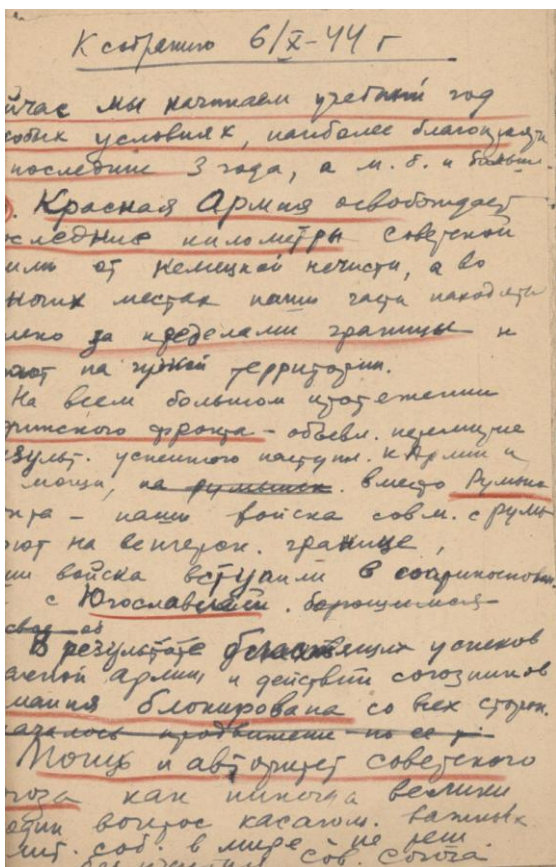 К собранию 6/X-44 г
йчас мы начинаем учебный год
собых условиях, наиболее благоприятн
последние 3 года, а м. б. и больше.
). Красная Армия освобождает
оследние километры советской
емли от немецкой нечисти, а во
многих местах наши части находятся
леко за пределами границы и
ают на чужой территории.
На всем большом протяжении
финского фронта – объявл. перемирие
езульт. успешного наступл. К. Армии и
мощи, на румынск. вместо Румынск
нта – наши войска совм. с румы
ют на венгерск. границе,
ши войска вступили в соприкосновен.
с Югославской. борющимися
свое об
В результате блестящих успехов
расной армии и действий союзников
мания блокирована со всех сторон.
ачалось продвижение по ее т.
Мощь и авторитет советского
юза как никогда велики
один вопрос касающ. важных
соб. в мире не реш.
без участия Сов. Союза.